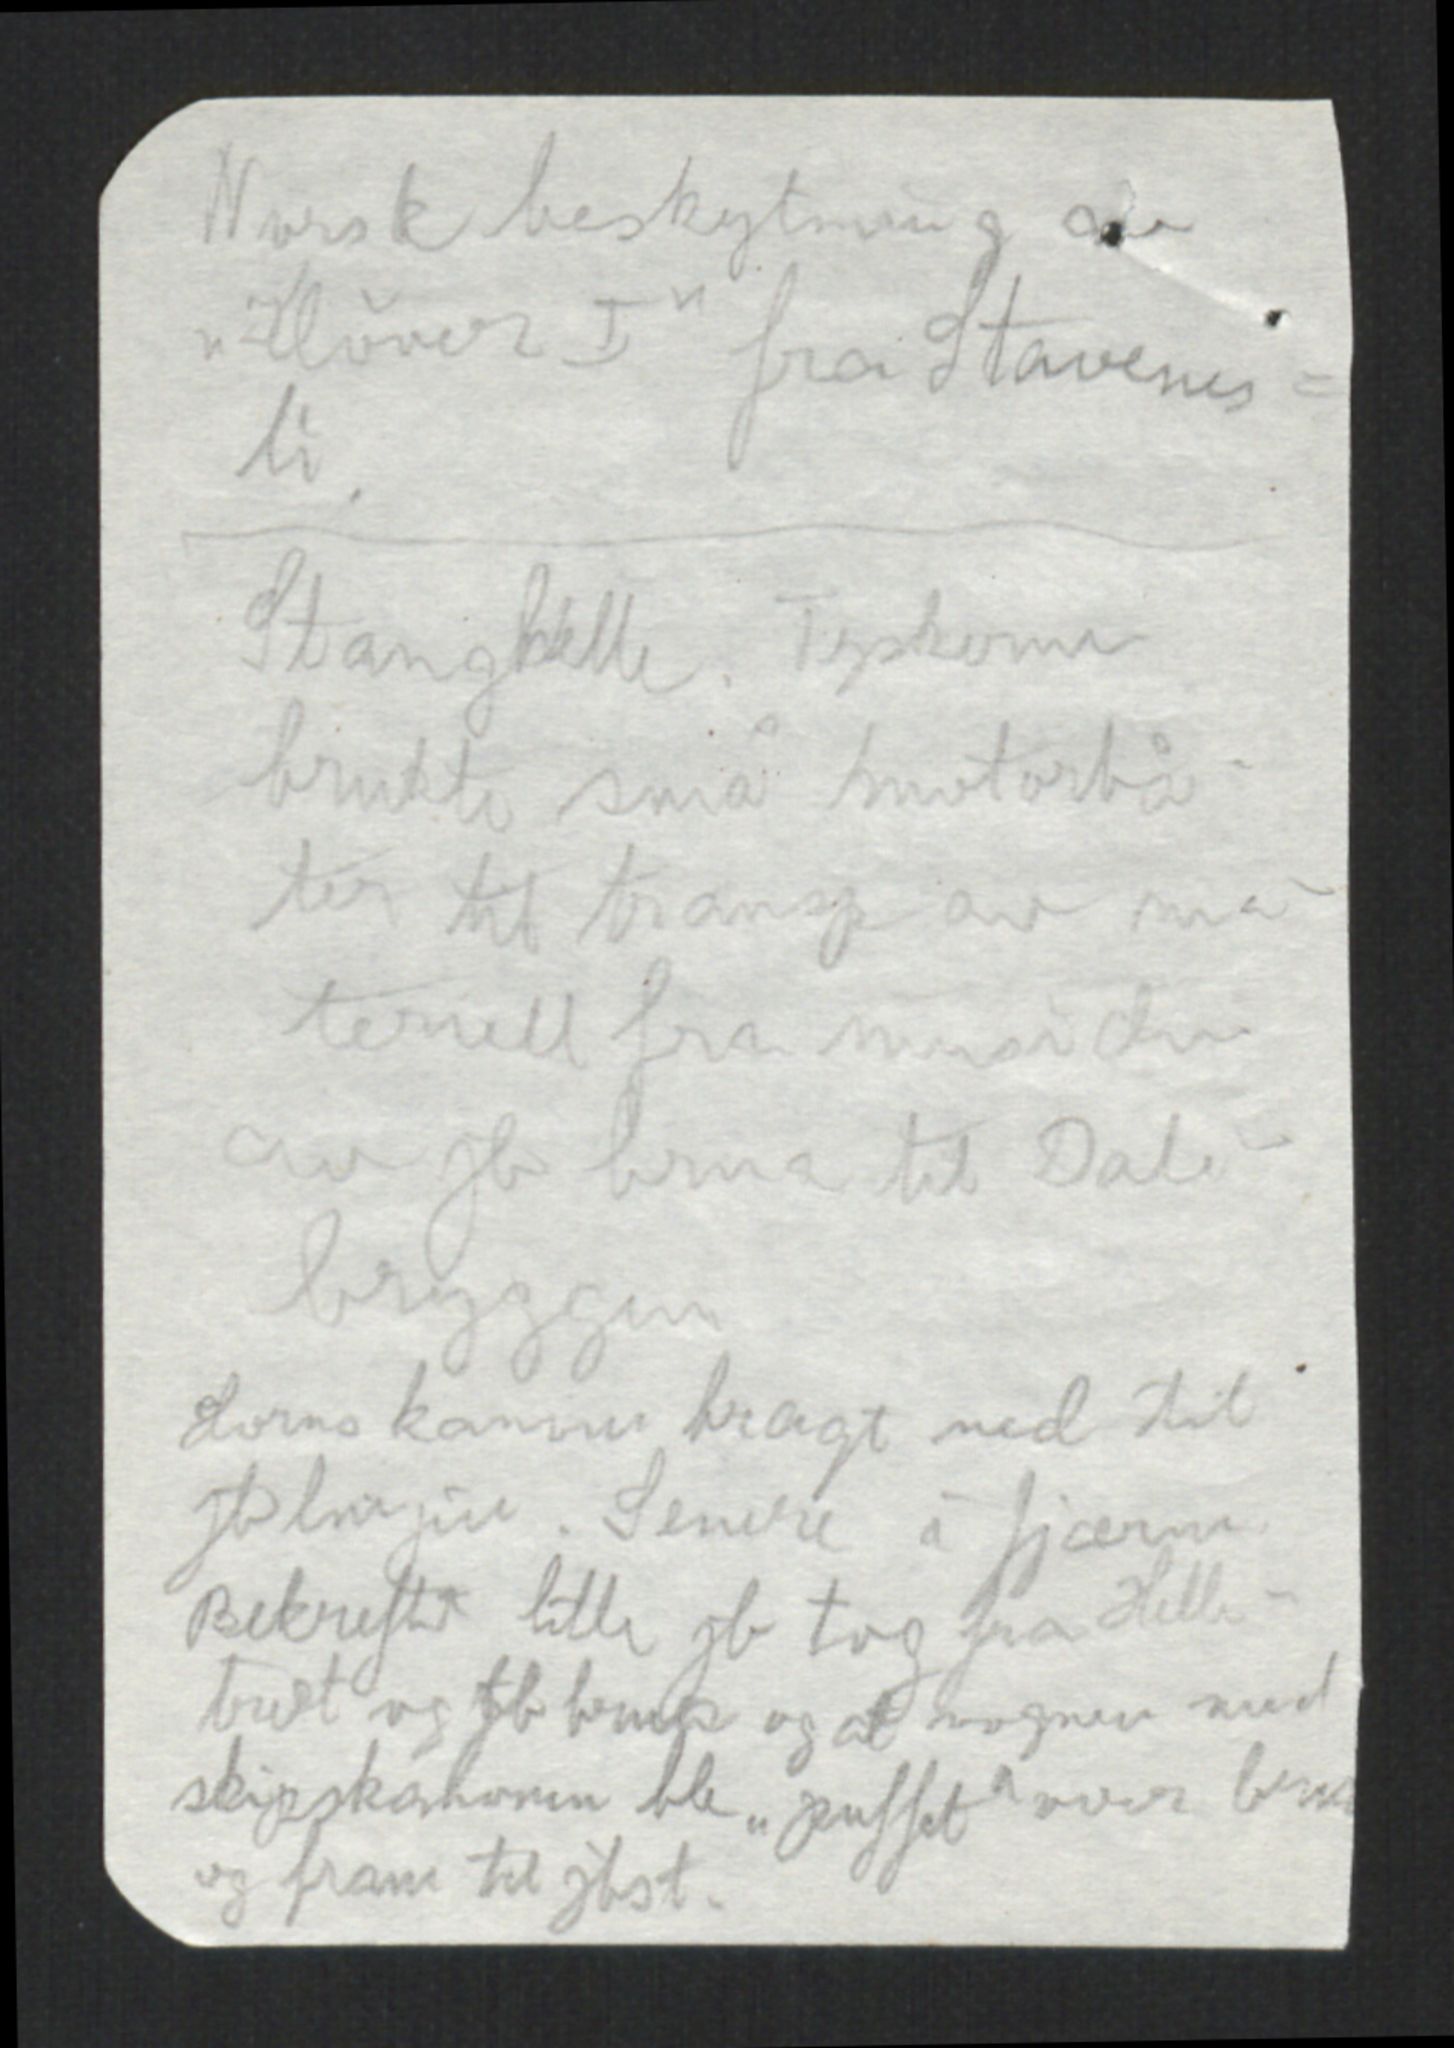 Norsk beskytning av
"Kløver I" fra Stavenes=
li.
Stanghelle. Tyskerne
brukte små motorbå-
ter til transp av ma-
teriell fra nersiden
av jb brua til Dale-
bryggen
kanonen bragt ned til
jb linjen. Senere å fjærne
Bekrefte lille jb tog fra Helle-
tret og jb brua og at vognen med
skipskanonen ble "puffet" over brua
og fram til jbst.